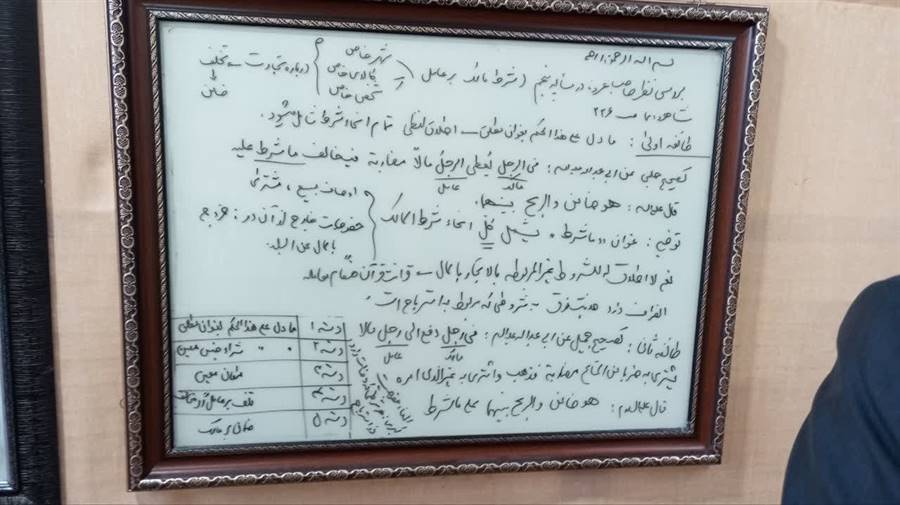 بسم الله الرحمن الرحیم
بررسی نظر صاحب عروه در مسأله پنجم (شرط مالک بر عامل)
شهر خاص
کالای خاص
شخص خاص
درباره تجارت ← تخلف
↓
ضامن
شاهد اما ص ۲۲۶
طائفه اولیٰ : ما دل علی هذا الحکم بعنوان مطلق ← اطلاق لفظی تمام انحاء شرط را شامل میشود .
کصحیح حلبی عن ابی عبدالله علیه السلام : فی الرجل یُعطی الرجلَ مالاً مضاربة فیخالف ما شرط علیه
مالک عامل
قال علیه السلام : هو ضامن والربح بینهما .
توضیح : عنوان «ما شرط» یشمل کلّ انحاء شرط المالک
اوصاف مبیع ، مشتری
خصوصیات خارج از آن در : خروج
بالمال عن البلد
نعم لا اطلاق له للشروط غیر المربوطه بالاتجار بالمال ←
انصراف دارد به شروطی که مربوط به استرباح است .
طائفه ثانیا : کصحیح جمیل عن ابی عبدالله علیه السلام : فی رجل دفع الی رجل مالا
مالک عامل
یشتری به ضرباً من المتاع مضاربة فذهب واشتری به غیر الذی امره
قال علیه السلام : هو ضامن والربح بینهما علی ما شرط
دسته ۱ ما دل علی هذا الحکم بعنوان مطلق
دسته ۲ " " شراء جنس معین
دسته ۳ مکان معین
دسته ۴
دسته ۵